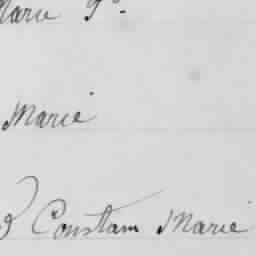 Marie
Marie
Constam Marie